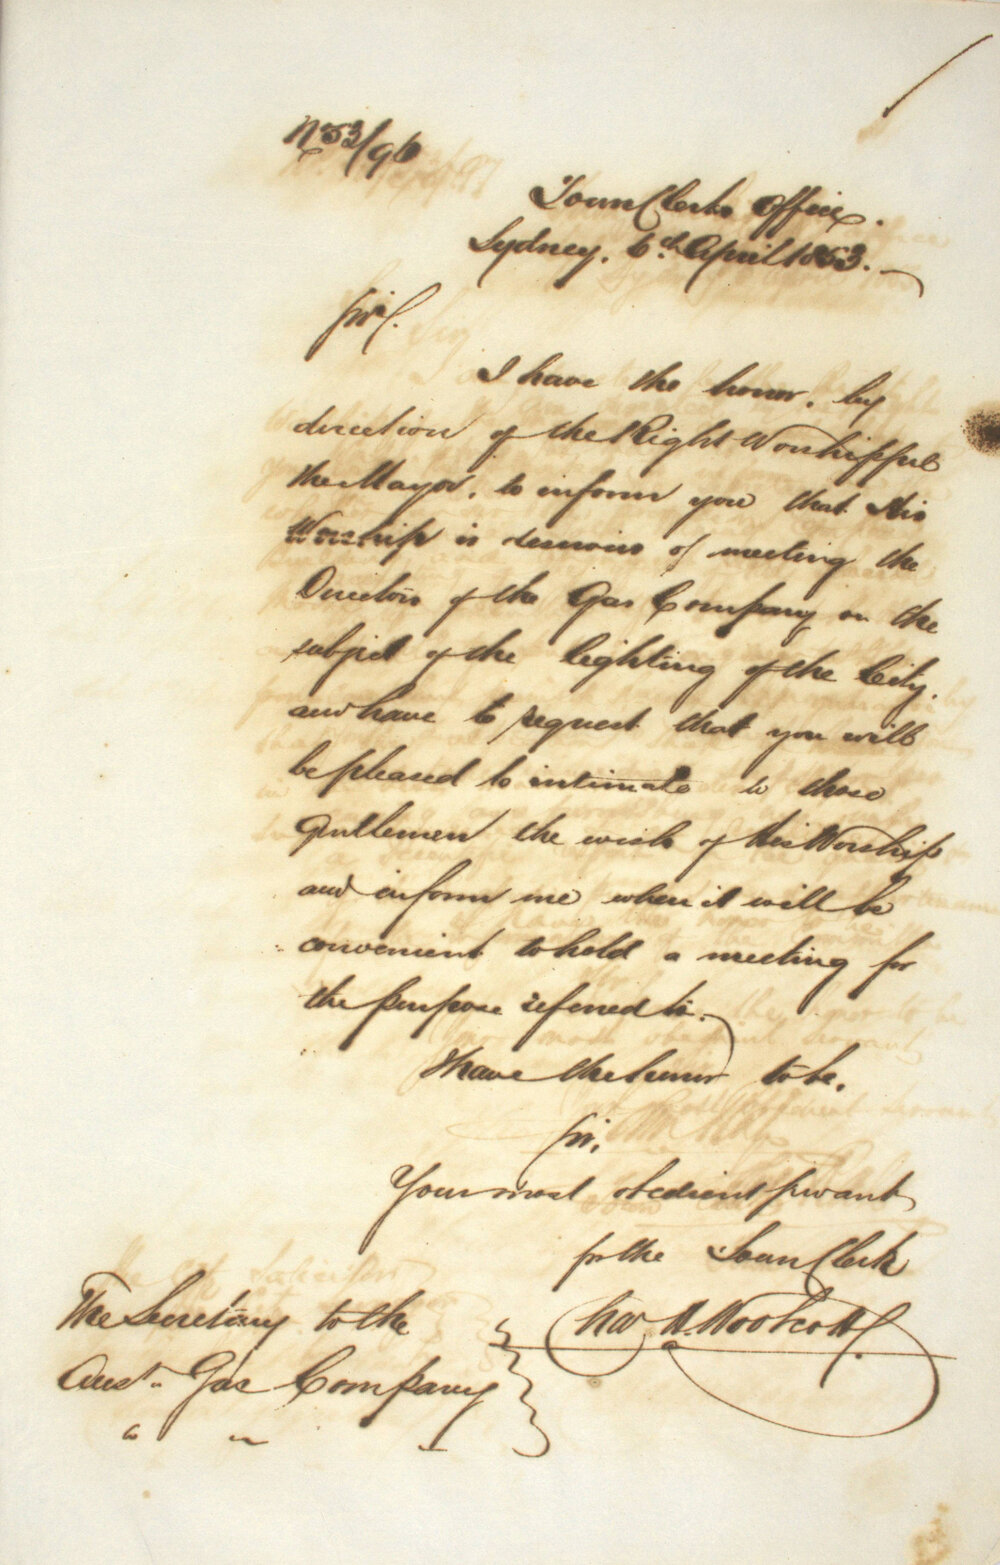 No 53/96
Town Clerks Office.
Sydney. 6th April 1853.
Sir,
I have the honor, by
direction of the Right Worshipful
the Mayor, to inform you that His
Worship is desirous of meeting the
Directors of the Gas Company on the
subject of the lighting of the City.
and have to request that you will
be pleased to intimate to those
Gentlemen the wish of His Worship
and inform me when it will be
convenient to hold a meeting for
the purpose referred to.
I have the honor to be,
Sir,
Your most obedient servant
for the Town Clerk
Chas H. Woolcott.
The Secretary to the
Aust. Gas Company